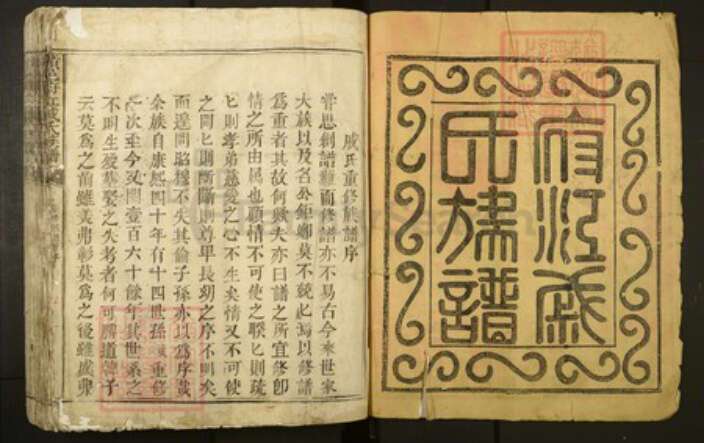 府江戚
氏族譜
戚氏重修族譜序
嘗思創譜難而修譜亦不易古今來世家
大族以及名公鉅卿莫不統此焉以修譜
為重者其故何歟夫亦曰譜之所宜修即
情之所由屬也顧情不可使之睽睽則疏
則孝弟慈愛之心不生矣情又不可使
之間則斷斷則尊卑長幼之序不明矣
而遠間脈繆不失其倫子孫亦以為序哉
余族自康熙四十年有十四世孫重修
次至今又閱壹百六十餘年其世系之
不明生娶葬之失考者何可勝道
云莫為之前雖美弗彰莫為之後雖盛弗